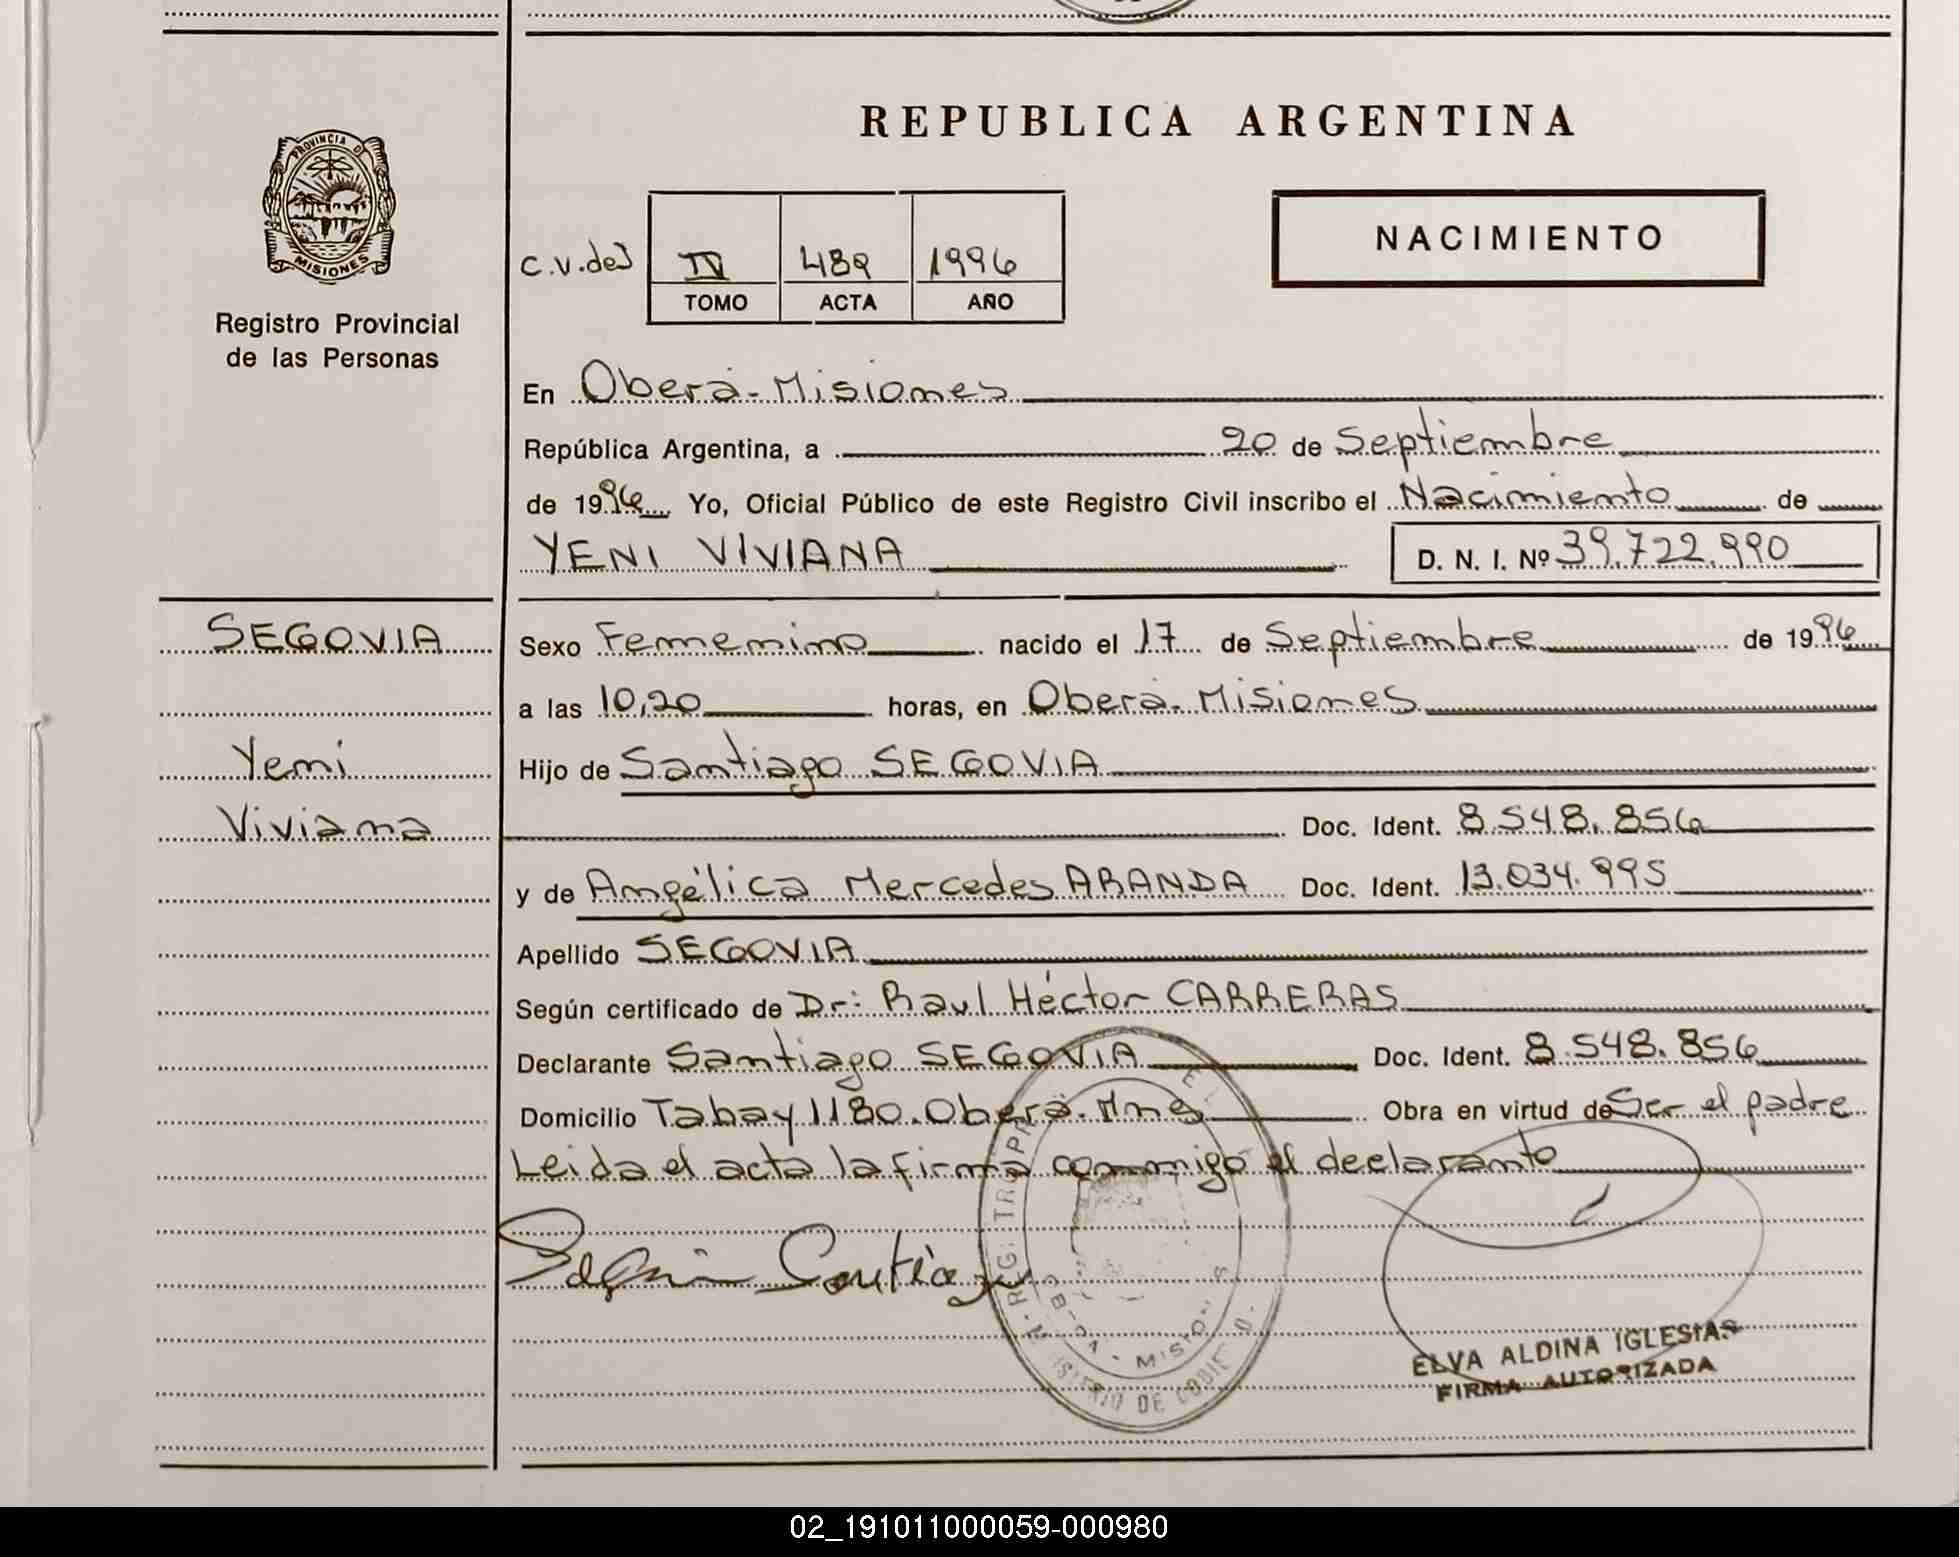 REPUBLICA ARGENTINA
PROVINCIA D
MISIONES
Registro Provincial
de las Personas
NACIMIENTO
C.V.de
IV 489 1996
TOMO ACTA AÑO
En Oberá-Misiones
República Argentina, a 20 de Septiembre
de 1996 Yo, Oficial Público de este Registro Civil inscribo el Nacimiento de
YENI VIVIANA D. N. I. Nº 39.722.990
SEGOVIA
Yeni
Viviana
Sexo Femenino nacido el 17 de Septiembre de 1996
a las 10,20 horas, en Oberá-Misiones
Hijo de Santiago SEGOVIA
Doc. Ident. 8.548.856
y de Angélica Mercedes ARANDA Doc. Ident. 13.034.995
Apellido SEGOVIA
Según certificado de Dr: Raul Héctor CARRERAS
Declarante Santiago SEGOVIA Doc. Ident. 8.548.856
Domicilio Tabay 1180.Oberá.Mnes Obra en virtud de Ser el padre
Leida el acta la firma conmmigo el declaranto
Santiago
ELVA ALDINA IGLESIAS
FIRMA AUTORIZADA
02_191011000059-000980